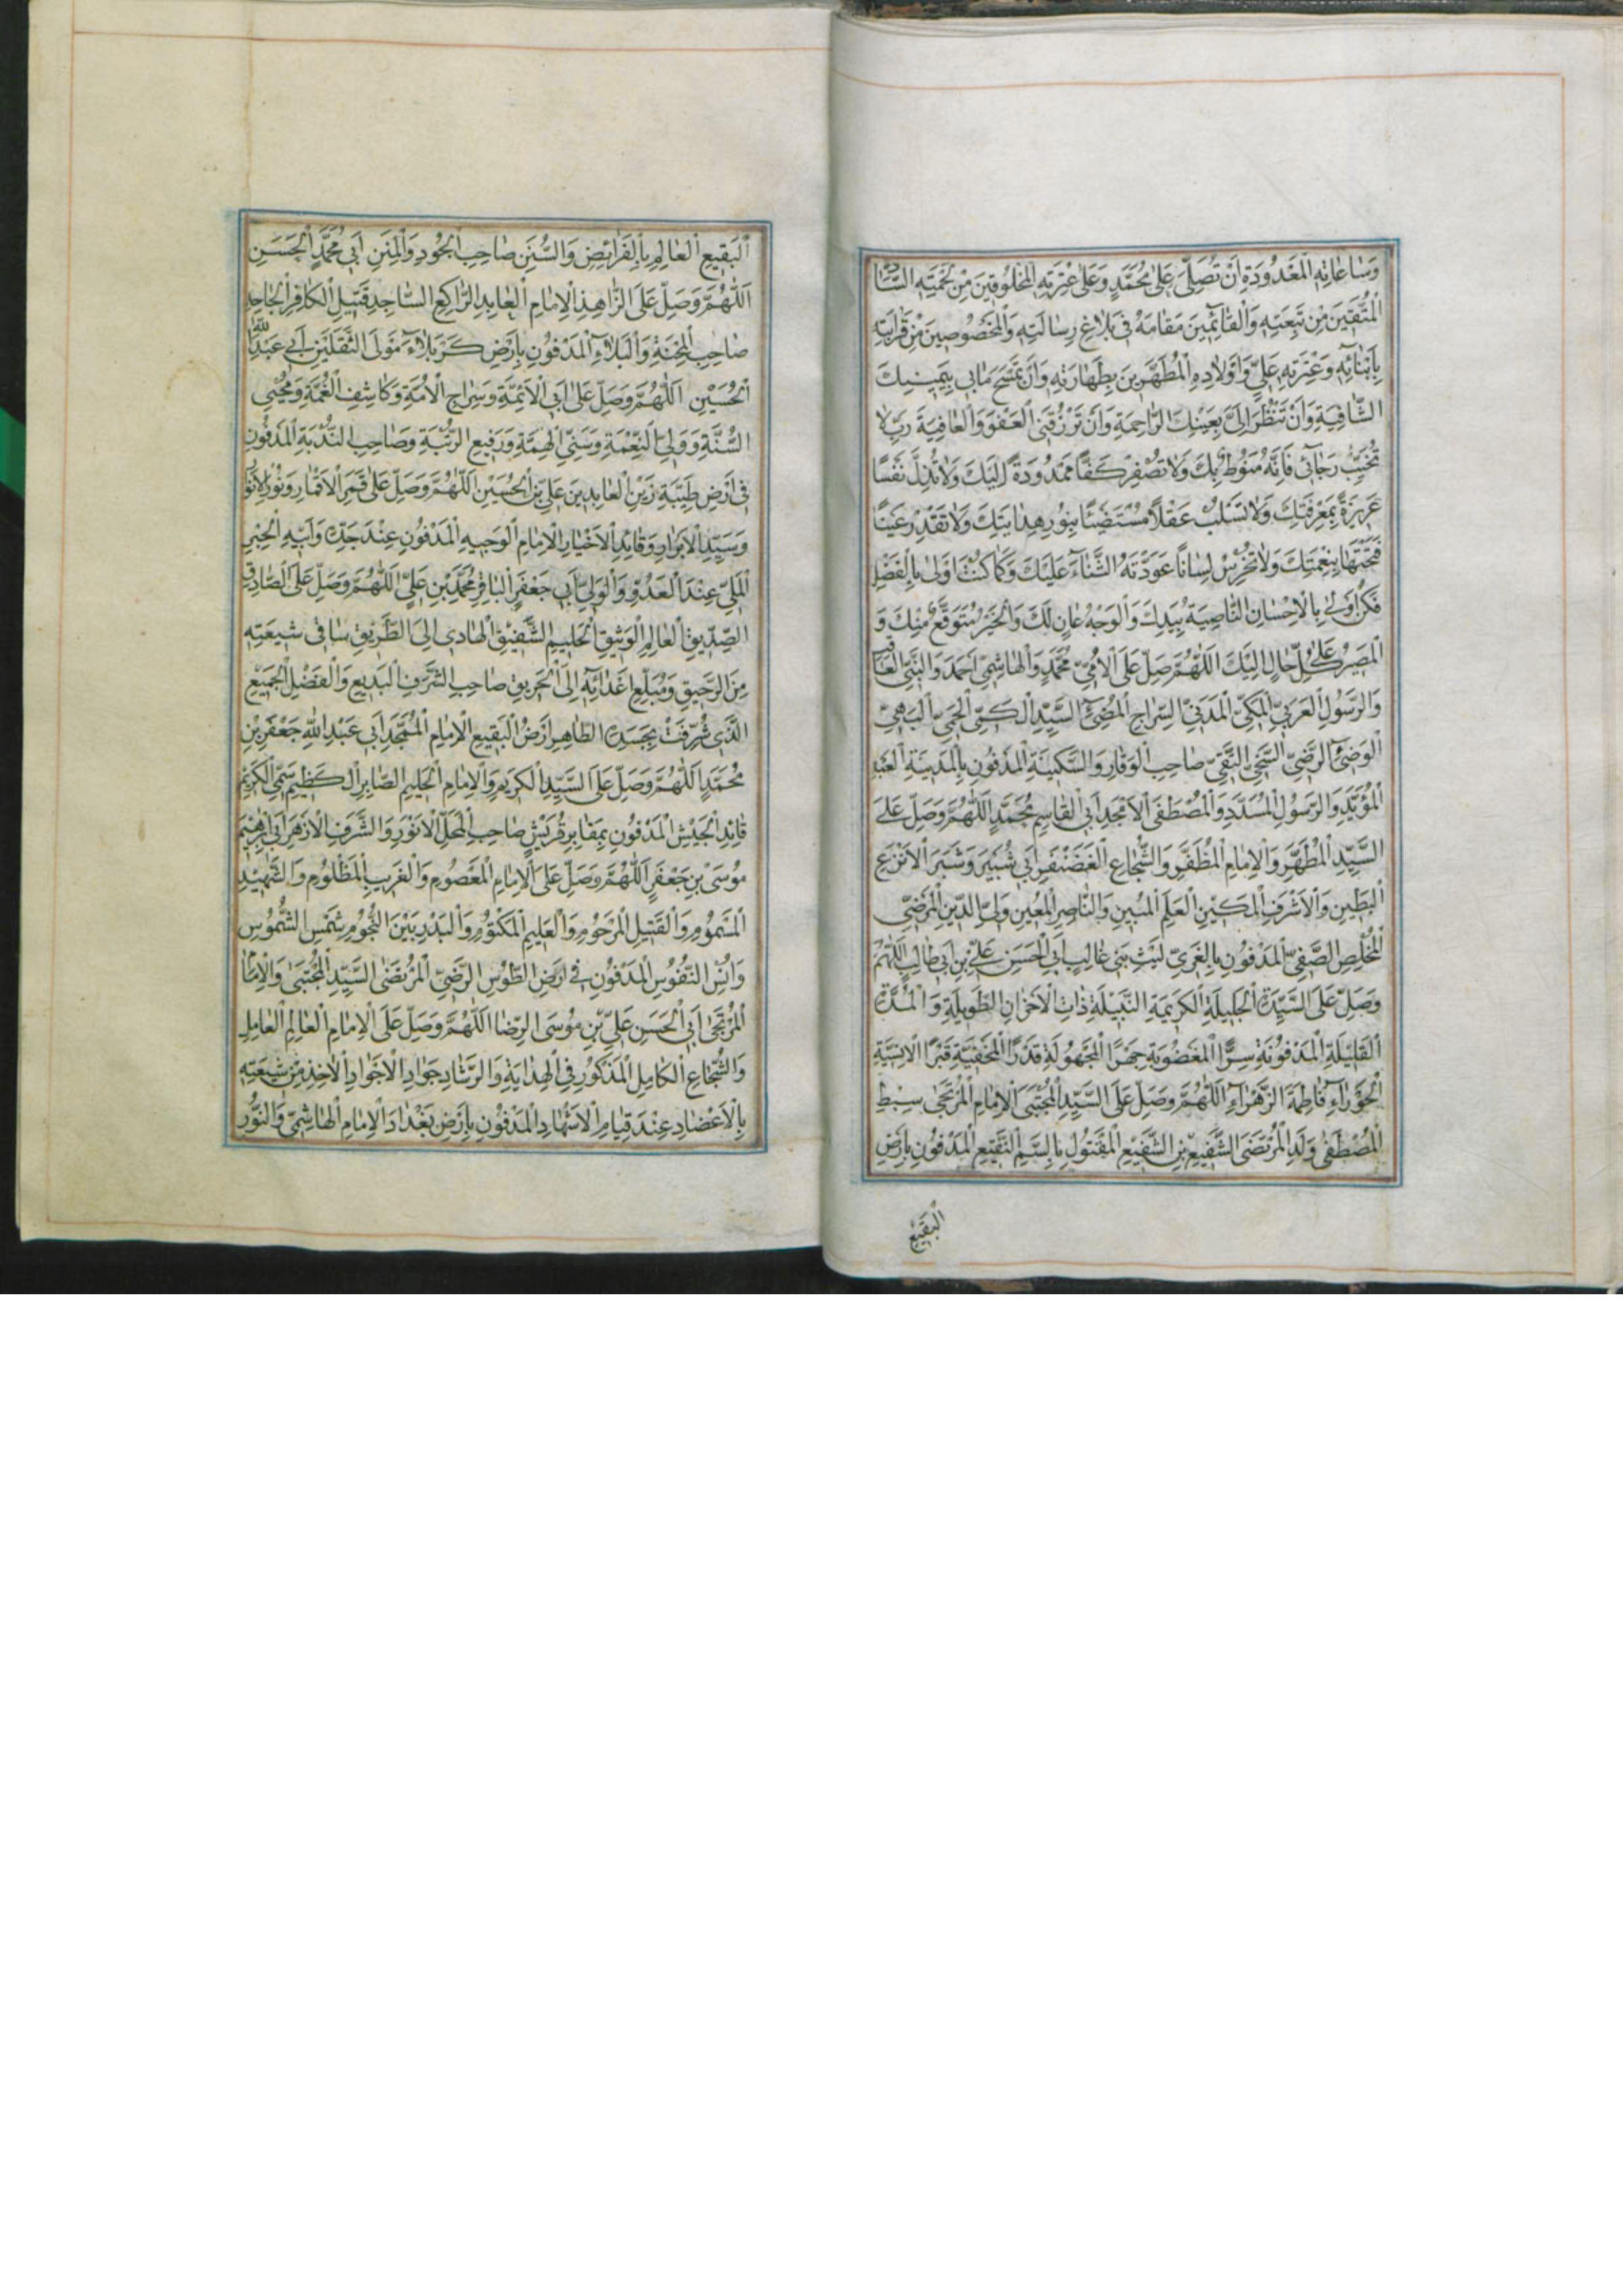 وَسَاعَاتِهِ الْمَعْدُودَةِ اَنْ تُصَلِّىَ عَلىٰ مُحَمَّدٍ وَعَلىٰ عِتْرَتِهِ الْمَخْلُوقِينَ مِنْ لَحْمَتِهِ السَّادَةِ
الْمُتَّقِينَ مِنْ تَبِعَتِهِ وَالْقَائِمِينَ مَقَامَهُ فِى بَلَاغِ رِسَالَتِهِ وَالْمَخْصُوصِينَ مِنْ قَرَابَتِهِ
بِاَبْنَائِهِ وَعِتْرَتِهِ عَلِيٍّ وَاَوْلَادِهِ الْمُطَهَّرِينَ بِطَهَارَتِهِ وَاَنْ تَمْسَحَ مَابِى بِيَمِينِكَ
الشَّافِيَةِ وَاَنْ تَنْظُرَ اِلَىَّ بِعَيْنِكَ الرَّاحِمَةِ وَاَنْ تَرْزُقَنِى الْعَفْوَ وَالْعَافِيَةَ رَبِّ لَا
تُخَيِّبْ رَجَائِى فَاِنَّهُ مَنُوطٌ بِكَ وَلَا تُصْفِرْ كَفًّا مَمْدُودَةً اِلَيْكَ وَلَا تُذِلَّ نَفْسًا
عَزِيزَةً بِمَعْرِفَتِكَ وَلَا تَسْلُبْ عَقْلًا مُسْتَضِيئًا بِنُورِ هِدَايَتِكَ وَلَا تُقْذِرْ عَيْنًا
فَتَحْتَهَا بِنِعْمَتِكَ وَلَا تُخْرِسْ لِسَانًا عَوَّدْتَهُ الثَّنَاءَ عَلَيْكَ وَكَمَا كُنْتَ اَوْلىٰ بِالْفَضْلِ
فَكُنْ اَوْلىٰ بِالْاِحْسَانِ النَّاصِيَةُ بِيَدِكَ وَالْوَجْهُ عَانٍ لَكَ وَالْخَيْرُ مُتَوَقَّعٌ مِنْكَ وَ
الْمَصِيرُ عَلىٰ كُلِّ حَالٍ اِلَيْكَ اَللّٰهُمَّ صَلِّ عَلَى الْاُمِّيِّ مُحَمَّدٍ وَالْهَاشِمِيِّ اَحْمَدَ وَالنَّبِيِّ الْعَاقِبِ
وَالرَّسُولِ الْعَرَبِيِّ الْمَكِّيِّ الْمَدَنِيِّ السِّرَاجِ الْمُضِىءِ السَّيِّدِ الْكَمِيِّ الْحَمِيِّ الْبَهِيِّ
الْوَضِىءِ الرَّضِيِّ السَّخِيِّ النَّقِيِّ صَاحِبِ الْوَقَارِ وَالسَّكِينَةِ الْمَدْفُونِ بِالْمَدِينَةِ الْعَبْدِ
الْمُؤَيَّدِ وَالرَّسُولِ الْمُسَدَّدِ وَالْمُصْطَفَى الْاَمْجَدِ اَبِى الْقَاسِمِ مُحَمَّدٍ اَللّٰهُمَّ وَصَلِّ عَلىَ
السَّيِّدِ الْمُطَهَّرِ وَالْاِمَامِ الْمُظَفَّرِ وَالشُّجَاعِ الْغَضَنْفَرِ اَبِى شُبَيْرَ وَشَبَرَ الْاَنْزَعِ
الْبَطِينِ وَالْاَشْرَفِ الْمَكِينِ الْعَلَمِ الْمُبِينِ وَالنَّاصِرِ الْمُعِينِ وَلِيِّ الدِّينِ الْمَرْضِيِّ
الْمُخْلِصِ الصَّفِيِّ الْمَدْفُونِ بِالْغَرِيِّ لَيْثِ بَنِى غَالِبٍ اَبِى الْحَسَنِ عَلِيِّ بْنِ اَبِى طَالِبٍ اَللّٰهُمَّ
وَصَلِّ عَلَى السَّيِّدَةِ الْجَلِيلَةِ الْكَرِيمَةِ النَّبِيلَةِ ذَاتِ الْاَحْزَانِ الطَّوِيلَةِ وَالْمُدَّةِ
الْقَلِيلَةِ الْمَدْفُونَةِ سِرًّا الْمَغْضُوبَةِ جَهْرًا الْمَجْهُولَةِ قَدْرًا الْمَخْفِيَّةِ قَبْرًا الْاِنْسِيَّةِ
الْحَوْرَاءِ فَاطِمَةَ الزَّهْرَاءِ اَللّٰهُمَّ وَصَلِّ عَلَى السَّيِّدِ الْمُجْتَبَى الْاِمَامِ الْمُرْتَجىٰ سِبْطِ
الْمُصْطَفىٰ وَلَدِ الْمُرْتَضَى الشَّفِيعِ بْنِ الشَّفِيعِ الْمَقْتُولِ بِالسَّمِّ النَّقِيعِ الْمَدْفُونِ بِاَرْضِ
الْبَقِيعِ
الْبَقِيعِ الْعَالِمِ بِالْفَرَائِضِ وَالسُّنَنِ صَاحِبِ الْجُودِ وَالْمِنَنِ اَبِى مُحَمَّدٍ الْحَسَنِ
اَللّٰهُمَّ وَصَلِّ عَلَى الزَّاهِدِ الْاِمَامِ الْعَابِدِ الرَّاكِعِ السَّاجِدِ قَتِيلِ الْكَافِرِ الْجَاحِدِ
صَاحِبِ الْمِحْنَةِ وَالْبَلَاءِ الْمَدْفُونِ بِاَرْضِ كَرْبَلَاءَ مَوْلَى الثَّقَلَيْنِ اَبِى عَبْدِ اللّٰهِ
الْحُسَيْنِ اَللّٰهُمَّ وَصَلِّ عَلىٰ اَبِى الْاَئِمَّةِ وَسِرَاجِ الْاُمَّةِ وَكَاشِفِ الْغُمَّةِ وَمُحْيِى
السُّنَّةِ وَوَلِيِّ النِّعْمَةِ وَسَنِيِّ الْهِمَّةِ وَرَفِيعِ الرُّتْبَةِ وَصَاحِبِ النُّدْبَةِ الْمَدْفُونِ
فِى اَرْضِ طَيِّبَةِ زَيْنِ الْعَابِدِينَ عَلِيِّ بْنِ الْحُسَيْنِ اَللّٰهُمَّ وَصَلِّ عَلىٰ قَمَرِ الْاَقْمَارِ وَنُورِ الْاَنْوَ
وَسَيِّدِ الْاَبْرَارِ وَقَائِدِ الْاَخْيَارِ الْاِمَامِ الْوَجِيهِ الْمَدْفُونِ عِنْدَ جَدِّهِ وَاَبِيهِ الْحِبْرِ
الْمَلِيِّ عِنْدَ الْعَدُوِّ وَالْوَلِيِّ اَبِى جَعْفَرٍ الْبَاقِرِ مُحَمَّدِ بْنِ عَلِيٍّ اَللّٰهُمَّ وَصَلِّ عَلَى الصَّادِقِ
الصِّدِّيقِ الْعَالِمِ الْوَثِيقِ الْحَلِيمِ الشَّفِيقِ الْهَادِى اِلَى الطَّرِيقِ سَاقِى شِيعَتِهِ
مِنَ الرَّحِيقِ وَمُبَلِّغِ اَعْدَائِهِ اِلَى الْحَرِيقِ صَاحِبِ الشَّرَفِ الْبَدِيعِ وَالْفَضْلِ الْجَمِيعِ
الَّذِى شُرِّفَتْ بِجَسَدِهِ الطَّاهِرِ اَرْضُ الْبَقِيعِ الْاِمَامِ الْمُمَجَّدِ اَبِى عَبْدِ اللّٰهِ جَعْفَرِ بْنِ
مُحَمَّدٍ اَللّٰهُمَّ وَصَلِّ عَلَى السَّيِّدِ الْكَرِيمِ وَالْاِمَامِ الْحَلِيمِ الصَّابِرِ الْكَظِيمِ سَمِيِّ الْكَرِيمِ
قَائِدِ الْجَيْشِ الْمَدْفُونِ بِمَقَابِرِ قُرَيْشٍ صَاحِبِ الْمَحَلِّ الْاَنْوَرِ وَالشَّرَفِ الْاَزْهَرِ اَبِى اِبْرٰهِيمَ
مُوسَى بْنِ جَعْفَرٍ اَللّٰهُمَّ وَصَلِّ عَلَى الْاِمَامِ الْمَعْصُومِ وَالْغَرِيبِ الْمَظْلُومِ وَالشَّهِيدِ
الْمَسْمُومِ وَالْقَتِيلِ الْمَرْحُومِ وَالْعَلِيمِ الْمَكْتُومِ وَالْبَدْرِ بَيْنَ النُّجُومِ شَمْسِ الشُّمُوسِ
وَاُنْسِ النُّفُوسِ الْمَدْفُونِ فِى اَرْضِ الطُّوسِ الرَّضِيِّ الْمُرْتَضَى السَّيِّدِ الْمُجْتَبىٰ وَالْاِمَامِ
الْمُرْتَجىٰ اَبِى الْحَسَنِ عَلِيِّ بْنِ مُوسَى الرِّضَا اَللّٰهُمَّ وَصَلِّ عَلَى الْاِمَامِ الْعَالِمِ الْعَامِلِ
وَالشُّجَاعِ الْكَامِلِ الْمَذْكُورِ فِى الْهِدَايَةِ وَالرَّشَادِ جَوَادِ الْاَجْوَادِ الْاٰخِذِ مِنْ شِيعَتِهِ
بِالْاَعْضَادِ عِنْدَ قِيَامِ الْاَشْهَادِ الْمَدْفُونِ بِاَرْضِ بَغْدَادَ الْاِمَامِ الْهَاشِمِيِّ وَالنُّورِ